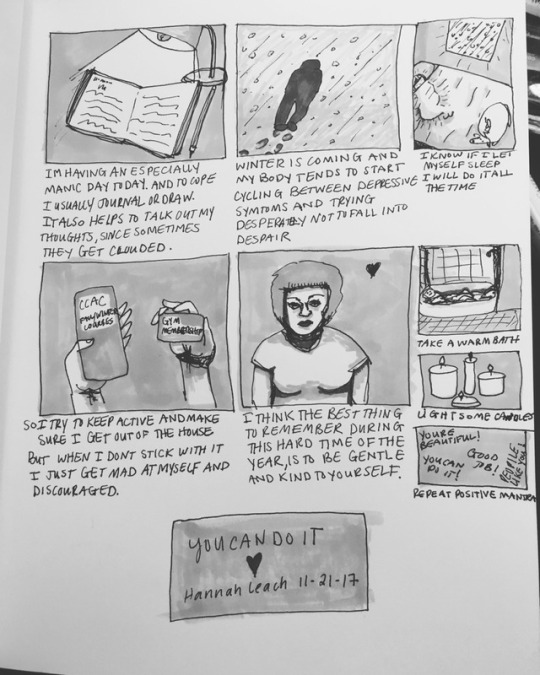 IM HAVING AN ESPECIALLY
MANIC DAY TODAY. AND TO COPE
I USUALLY JOURNAL OR DRAW.
IT ALSO HELPS TO TALK OUT MY
THOUGHTS, SINCE SOMETIMES
THEY GET CLOUDED.
WINTER IS COMING AND
MY BODY TENDS TO START
CYCLING BETWEEN DEPRESSIVE
SYMTOMS AND TRYING
DESPERATELY NOT TO FALL INTO
DESPAIR
I KNOW IF I LET
MYSELF SLEEP
I WILL DO IT ALL
THE TIME
CCAC
COURSES
GYM
MEMBERSHIP
SO I TRY TO KEEP ACTIVE AND MAKE
SURE I GET OUT OF THE HOUSE
BUT WHEN I DONT STICK WITH IT
I JUST GET MAD AT MYSELF AND
DISCOURAGED.
I THINK THE BEST THING
TO REMEMBER DURING
THIS HARD TIME OF THE
YEAR, IS TO BE GENTLE
AND KIND TO YOURSELF.
TAKE A WARM BATH
LIGHT SOME CANDLES
YOURE
BEAUTIFUL!
YOU CAN
DO IT!
GOOD
JOB!
PEOPLE
LIKE YOU
REPEAT POSITIVE MANTRA
YOU CAN DO IT
Hannah Leach 11-21-17